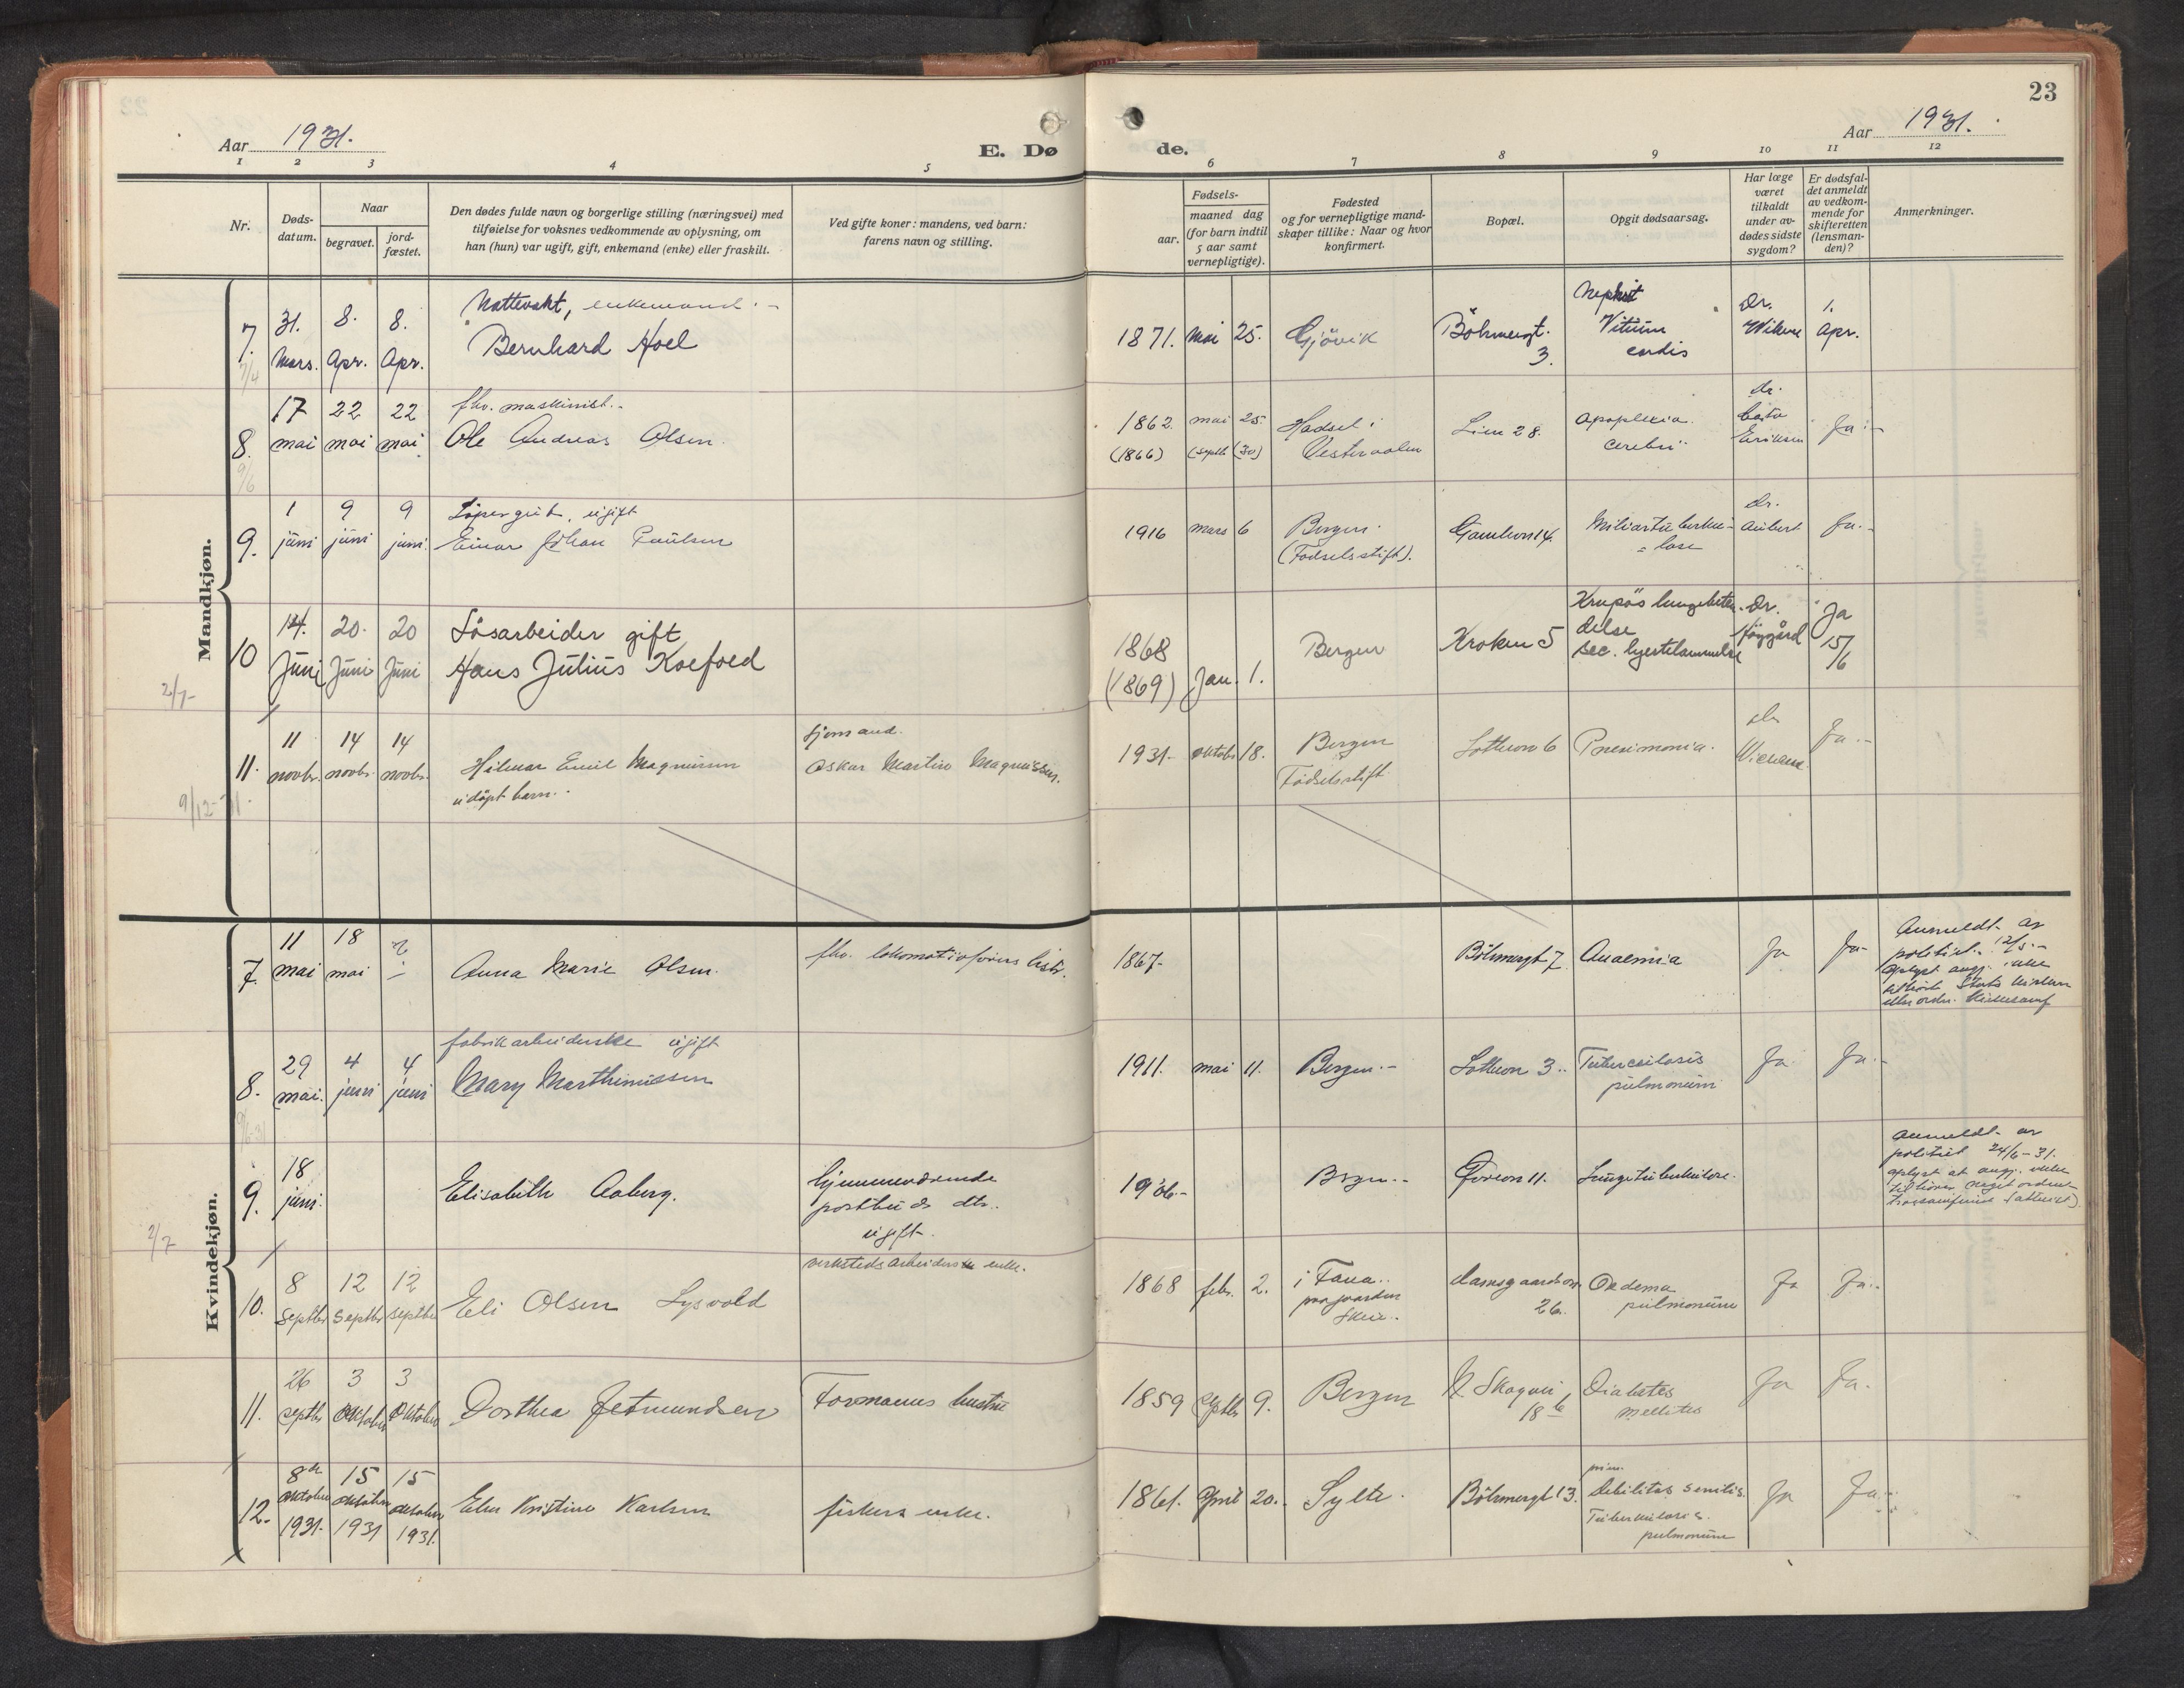 Aar 1931.
E. Dø
1 2 3 4 5
Nr.
Døds-
datum.
Naar
begravet.
jord-
fæstet.
Den dødes fulde navn og borgerlige stilling (næringsvei) med
tilføielse for voksnes vedkommende av oplysning, om
han (hun) var ugift, gift, enkemand (enke) eller fraskilt.
Ved gifte koner: mandens, ved barn:
farens navn og stilling.
Mandkjøn.
7.
7/4
31.
Mars.
8.
Apr.
8.
Apr.
Nattevakt, enkemand.-
Bernhard Hoel
8.
9/6
17
mai
22
mai
22
mai.
fhv. maskinist..
Ole Andreas Olsen.
9.
1
juni
9
juni
9
juni.
Løpergut, ugift
Einar Johan Paulsen
10
2/7-
14.
Juni
20.
Juni
20
Juni
Løsarbeider gift
Hans Julius Koefoed
11.
9/12-31.
11
novbr.
14
novbr.
14
novbr.
Hilmar Emil Magnussen
udøpt barn..
sjømand.
Oskar Martin Magnussen.
Kvindekjøn.
7.
11
mai
18
mai
Anna Marie Olsen.
fhv. lokomotivførers hustr.
8.
9/6-31
29
mai.
4
juni
4
juni
fabrikarbeiderske ugift
Mary Marthinussen
9.
2/7
18
juni.
Elisabeth Aaberg.
hjemmeværende
postbuds dtr..
ugift.
10.
8
Septbr
12
Septbr
12
septbr
Eli Olsen Lysvold
verkstedsarbeiders enke.
11.
26
septbr
3
Oktober
3
Oktober
Dorthea Jetmundsen
Formanns hustru
12.
8de
Oktober
1931.
15
oktober
1931
15
oktober
1931.
Elen Kristine Karlsen
fiskers enke.
23
de.
Aar 1931.
6 7 8 9 10 11 12
Fødsels-
aar.
maaned dag
(for barn indtil
5 aar samt
vernepligtige).
Fødested
og for vernepligtige mand-
skaper tillike: Naar og hvor
konfirmert.
Bopæl.
Opgit dødsaarsag.
Har læge
været
tilkaldt
under av-
dødes sidste
sygdom?
Er dødsfal-
det anmeldt
av vedkom-
mende for
skifteretten
(lensman-
den)?
Anmerkninger.
1871. Mai 25. Gjøvik
Böhmergt.
3.
Nephrit
Vitium
cordis
Dr.
1.
Apr.
1862. mai 25.
(1866) (septb (30)
Hadsel i
Vesteraalen
Lien 28.
Apoplexia
cerebri
dr.
Eriksen
Ja.-
1916 mars 6
Bergen.
(Fødselsstift).
14.
Miliærtuberku-
=lose
dr.
Aubert
Ja.-
1868
(1869) Jan. 1.
Bergen
Kroken 5
Krupøs lungebeten-
delse
sec. hjertelammelse
Dr.
Høygård
Ja
15/
6
1931. oktobr 18.
Bergen
Fødselsstift
6
Pneumonia.
Ja.-
1867.
Böhmergt 7.
Anaemia
Ja
Ja-
Anmeldt av
politiet. 12/5.-
oplyst avg. ikke
tilhørte Stats kirken
1911. mai 11.
Bergen.-
3..
Tuberculosis
pulmonum
Ja
Ja.-
1906.-
Bergen..
11.
Lungetuberkulose.
Anmeldt av
politiet 24/6-31.
oplyst at avg. ikke
tilhører noget ordnet
trossamfund (atheist)
1868 febr. 2.
i Fana..
paa gaarden
Damsgaardsvn
26.
Oedema
pulmonum
Ja
Ja..
1859 Septbr 9.
Bergen
N. Skogvei
18 b
Diabetes
mellitus
Ja
Ja.
1861. April 20.
Sylte.
Böhmergt 13.
prim.
Debilitas senilis.
Tuberkulosis.
pulmonum
Ja
Ja.